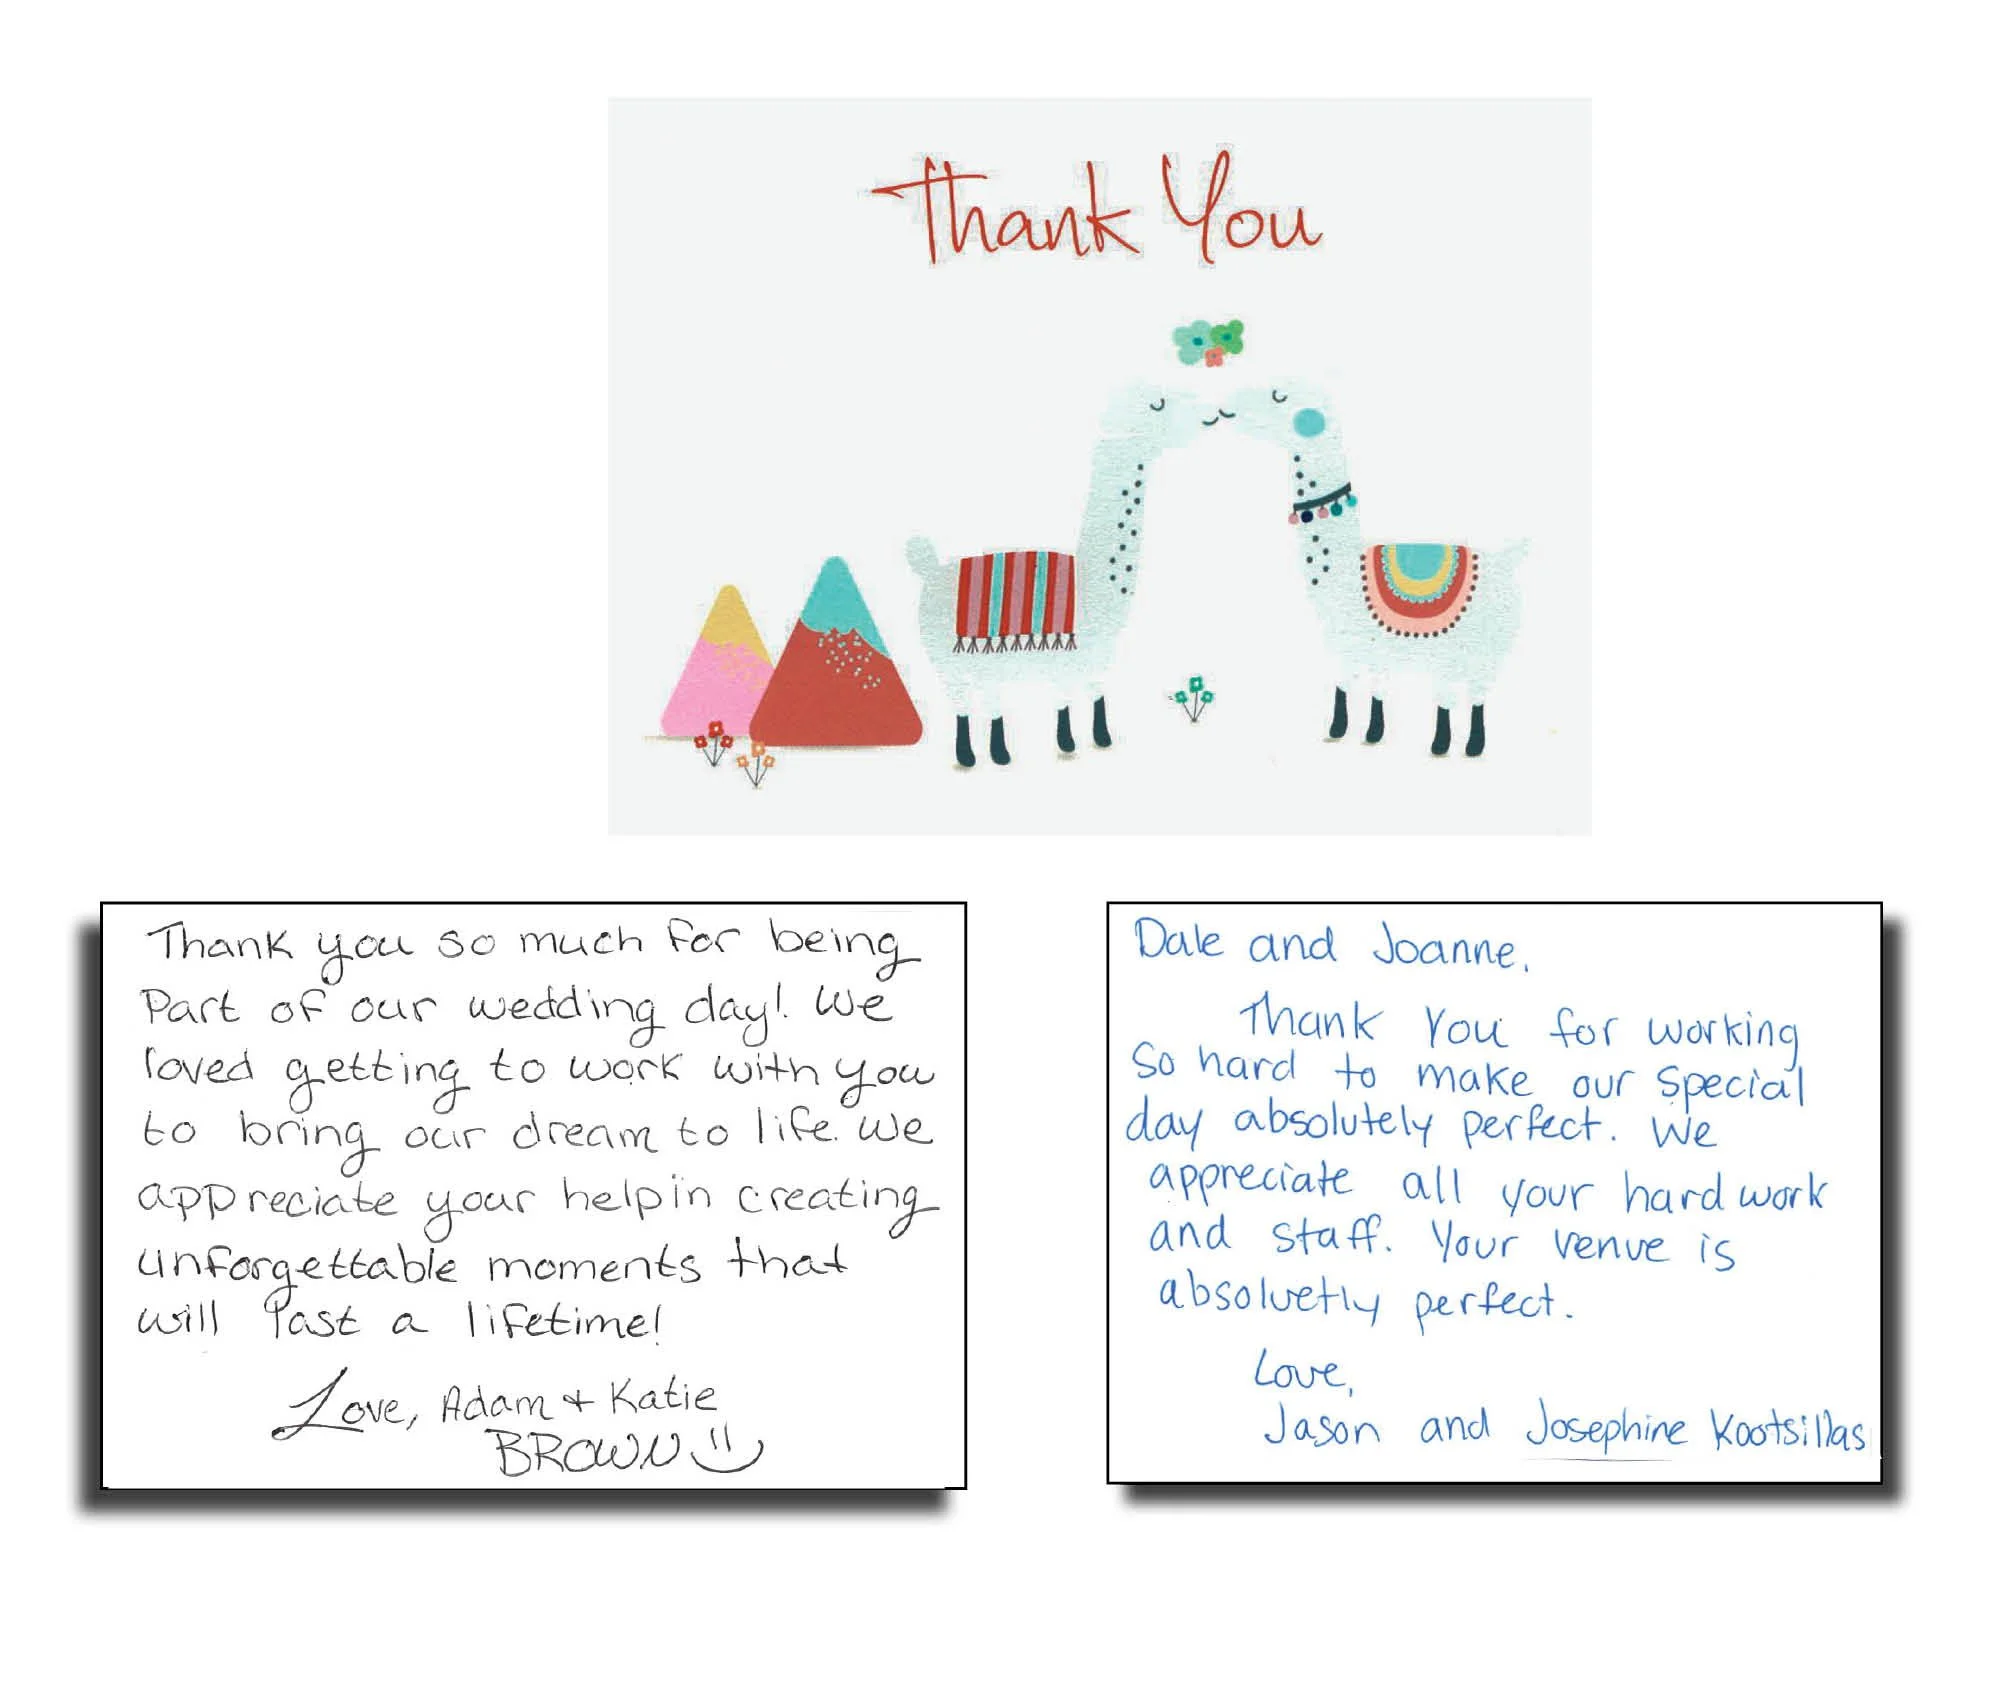 Thank You
Thank you so much for being
Part of our wedding day! We
loved getting to work with you
to bring our dream to life. We
appreciate your help in creating
unforgettable moments that
will last a lifetime!
Love, Adam + Katie
BROWN
Dale and Joanne,
Thank You for working
So hard to make our special
day absolutely perfect. We
appreciate all your hard work
and staff. Your venue is
absolvetly perfect.
Love,
Jason and Josephine Kootsillas